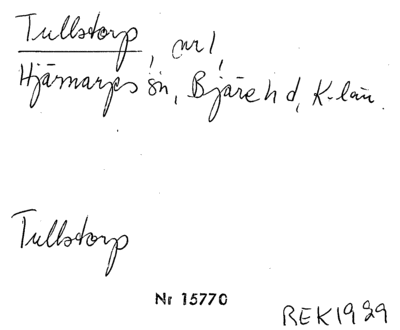 Tullstorp, art,
Hjärnarps sn, Bjäre hd, K-län.
Tullstorp
Nr 15770
REK 1929